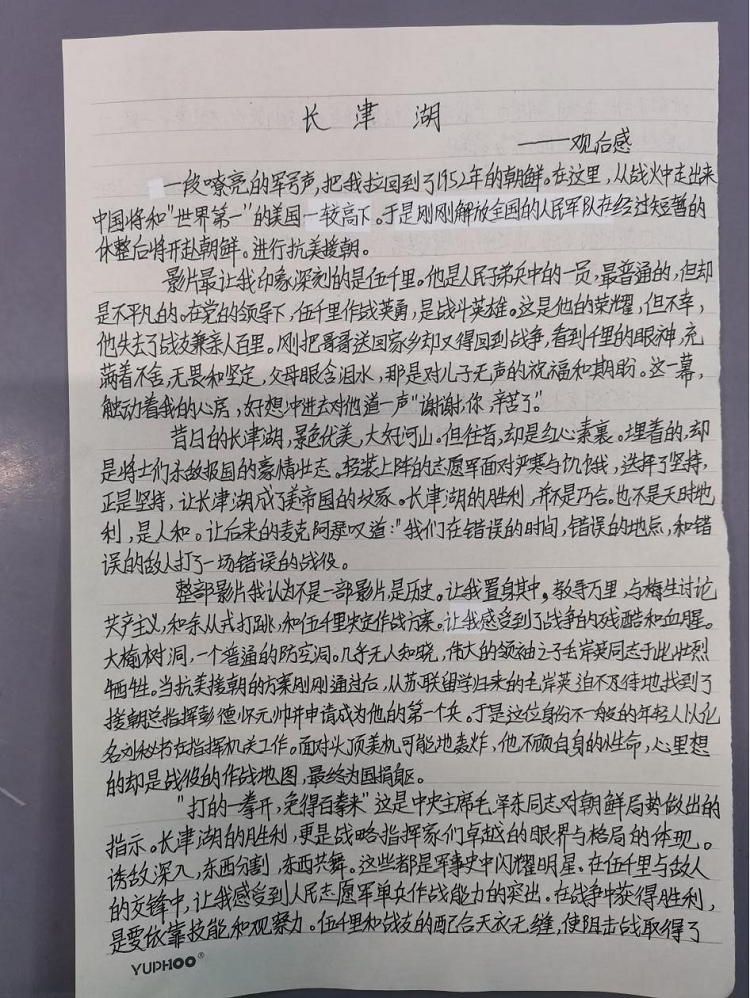 长津湖
——观后感
一段嘹亮的军号声,把我拉回到了1952年的朝鲜。在这里,从战火中走出来
中国将和"世界第一"的美国一较高下。于是刚刚解放全国的人民军队在经过短暂的
休整后将开赴朝鲜。进行抗美援朝。
影片最让我印象深刻的是伍千里。他是人民子弟兵中的一员,最普通的,但却
是不平凡的。在党的领导下,伍千里作战英勇,是战斗英雄。这是他的荣耀,但不幸,
他失去了战友兼亲人百里。刚把哥哥送回家乡却又得回到战争,看到千里的眼神,充
满着不舍,无畏和坚定,父母眼含泪水,那是对儿子无声的祝福和期盼。这一幕,
触动着我的心房,好想冲进去对他道一声"谢谢,你,辛苦了"
昔日的长津湖,景色优美,大好河山。但往昔,却是红心素裹。埋着的,却
是将士们杀敌报国的豪情壮志。轻装上阵的志愿军面对严寒与饥饿,选择了坚持,
正是坚持,让长津湖成了美帝国的坟冢。长津湖的胜利,并不是巧合。也不是天时地
利,是人和。让后来的麦克阿瑟叹道:"我们在错误的时间,错误的地点,和错
误的敌人打了一场错误的战役。
整部影片我认为不是一部影片,是历史。让我置身其中。教导万里,与梅生讨论
共产主义,和余从戎打跳,和伍千里决定作战方案。让我感受到了战争的残酷和血腥。
大榆树洞,一个普通的防空洞。几乎无人知晓,伟大的领袖之子毛岸英同志于此壮烈
牺牲。当抗美援朝的方案刚刚通过后,从苏联留学归来的毛岸英迫不及待地找到了
援朝总指挥彭德怀元帅并申请成为他的第一个兵。于是这位身份不一般的年轻人以化
名刘秘书在指挥机关工作。面对火顶美机可能地轰炸,他不顾自身的性命,心里想
的却是战役的作战地图,最终为国捐躯。
"打的一拳开,免得百拳来"这是中央主席毛泽东同志对朝鲜局势做出的
指示。长津湖的胜利,更是战略指挥家们卓越的眼界与格局的体现。
诱敌深入,东西分割,东西共舞。这些都是军事史中闪耀明星。在伍千里与敌人
的交锋中,让我感受到人民志愿军单兵作战能力的突出。在战争中获得胜利,
是要依靠技能和观察力。伍千里和战友的配合天衣无缝,使阻击战取得了
YUPHOO®